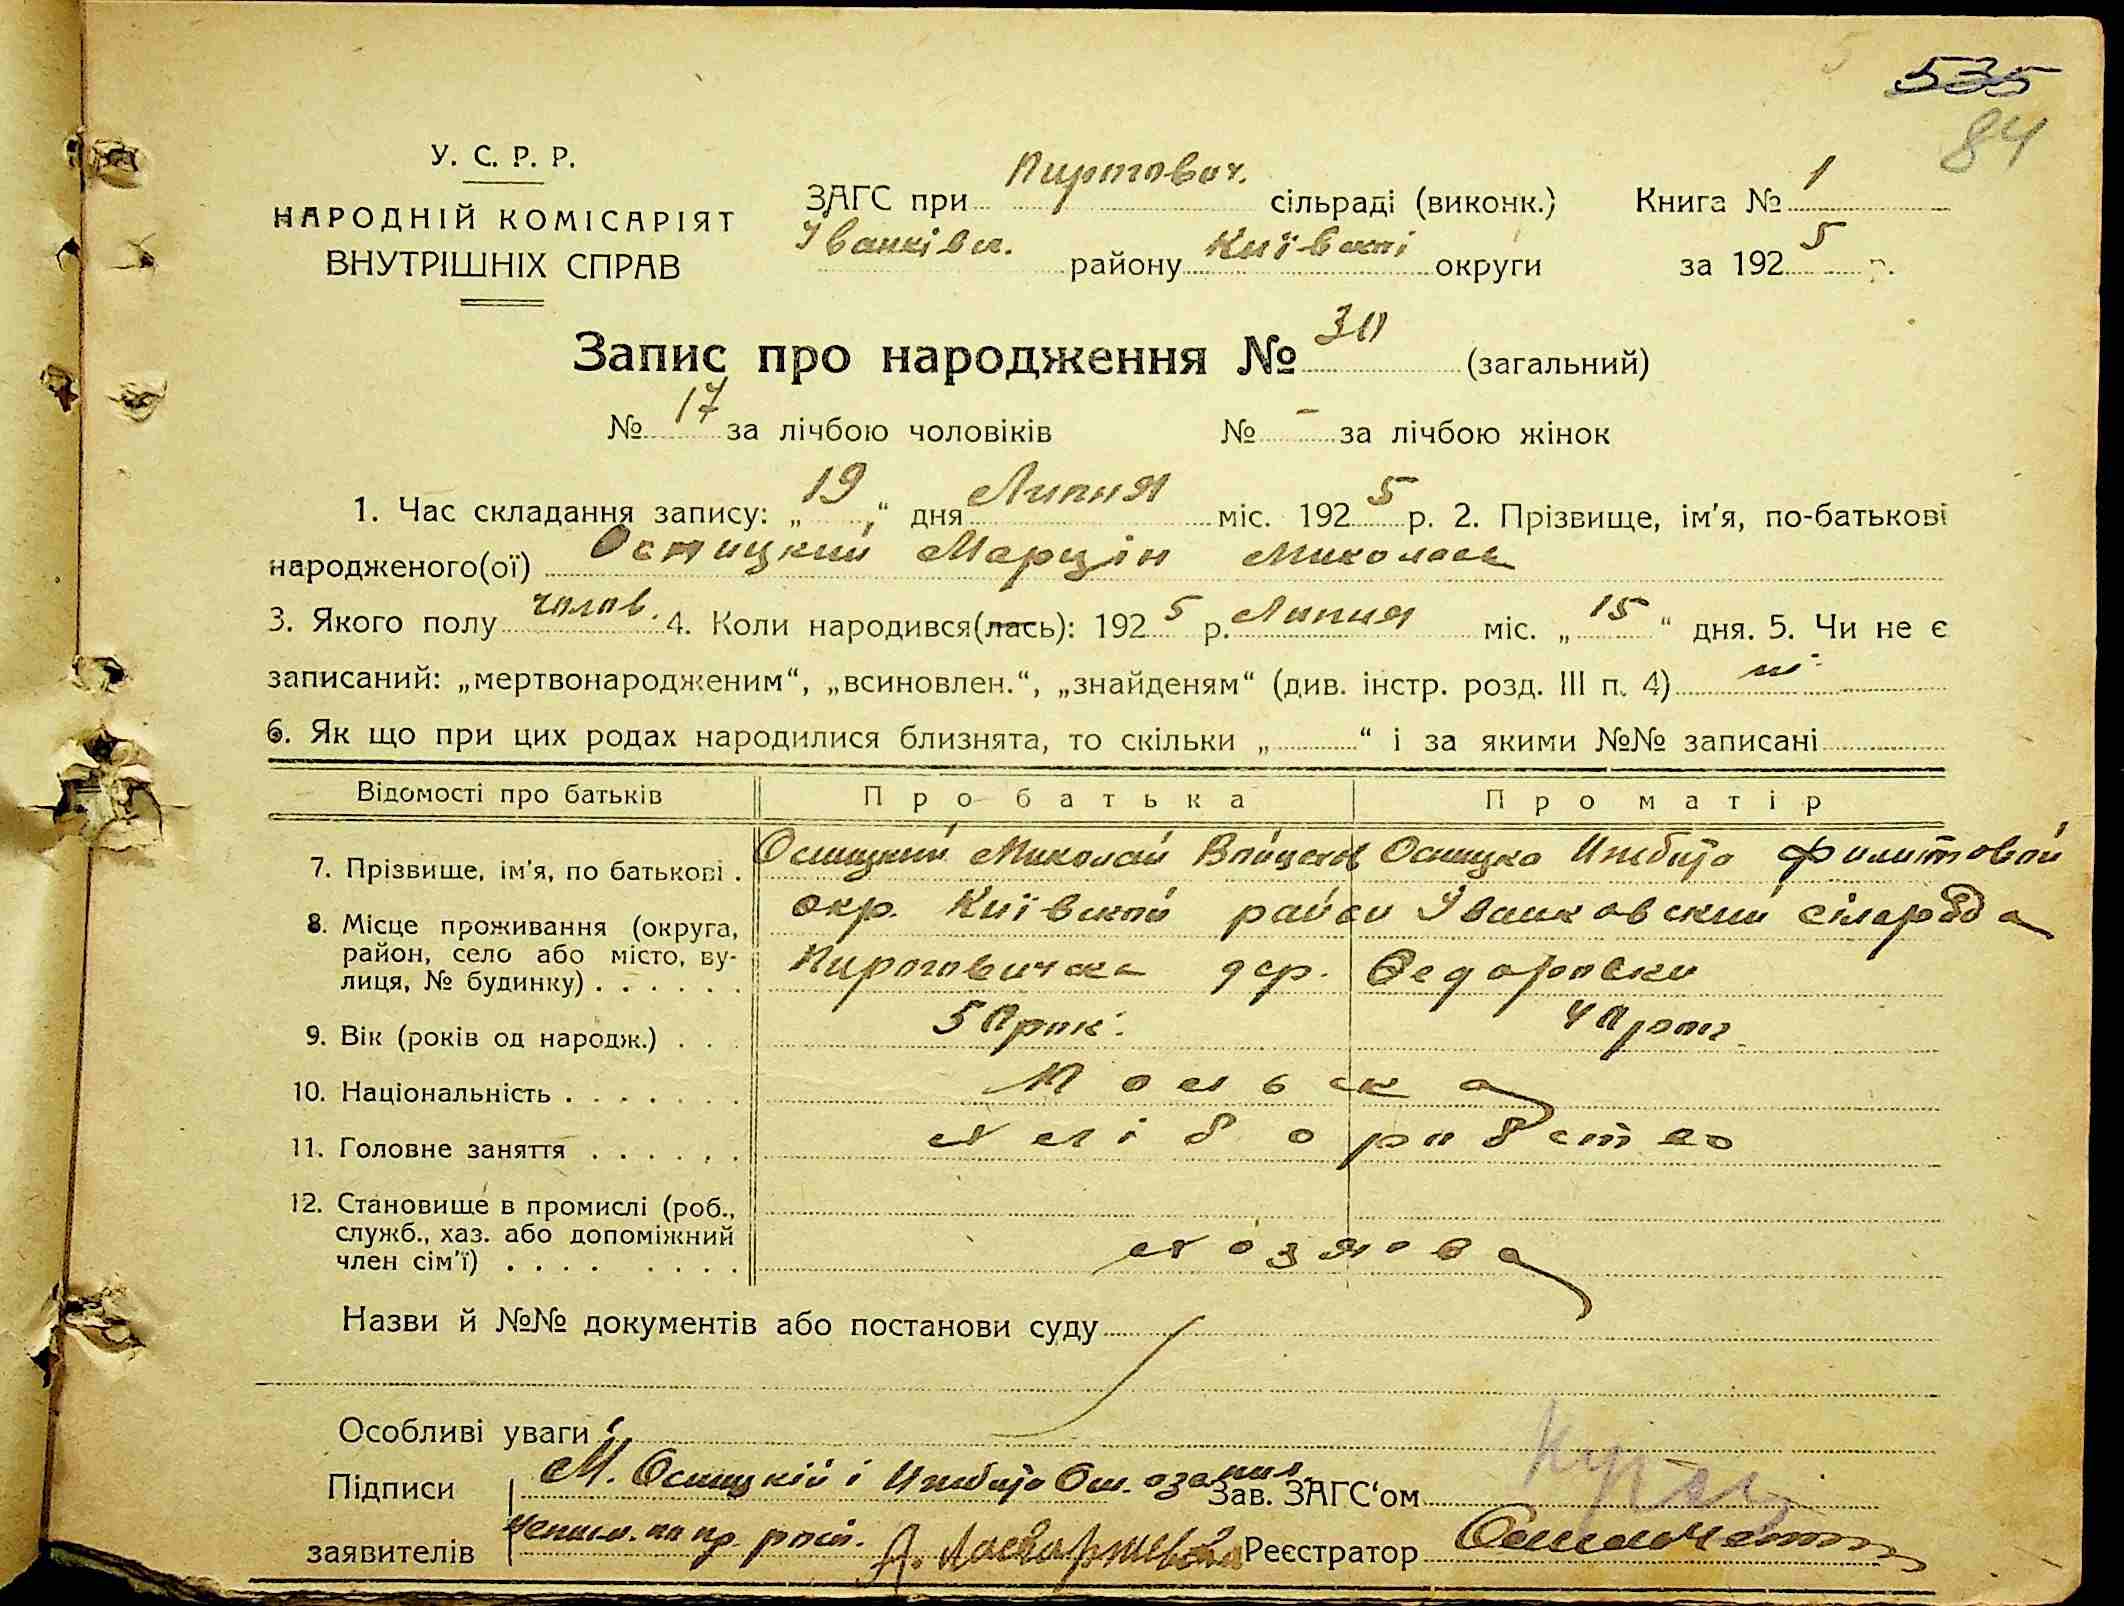 535
84
У. С. Р. Р.
НАРОДНІЙ КОМІСАРІЯТ
ВНУТРІШНІХ СПРАВ
ЗАГС при Пиргович. сільраді (виконк.) Книга № 1
Іванків. району Київскої округи за 1925 р.
Запис про народження № 30 (загальний)
№ 17 за лічбою чоловіків № – за лічбою жінок
1. Час складання запису: „19“ дня Липня міс. 1925 р. 2. Прізвище, ім'я, по-батькові
народженого(ої) Осницкий Марцін Миколаев
3. Якого полу чолов. 4. Коли народився(лась): 1925 р. Липня міс. „15“ дня. 5. Чи не є
записаний: „мертвонародженим“, „всиновлен.“, „знайденям“ (див. інстр. розд. III п. 4) ні
6. Як що при цих родах народилися близнята, то скільки „ “ і за якими №№ записані
Відомості про батьків Про батька Про матір
7. Прізвище, ім'я, по батькові . Осницкий Миколай
8. Місце проживання (округа, окр. Київской район Іванковский сілрада
район, село або місто, ву-
лиця, № будинку) . . . . . . Пирговичска дер. Федоровки
9. Вік (років од народж.) . . . 50 рок. 40 рок.
10. Національність . . . . . . . Польска
11. Головне заняття . . . . . . Хліборобство
12. Становище в промислі (роб.,
служб., хаз. або допоміжний
член сім'ї) . . . . . . . . Хозяова
Назви й №№ документів або постанови суду
Особливі уваги
Підписи М. Осницкій і Зав. ЗАГС'ом
заявителів Реєстратор